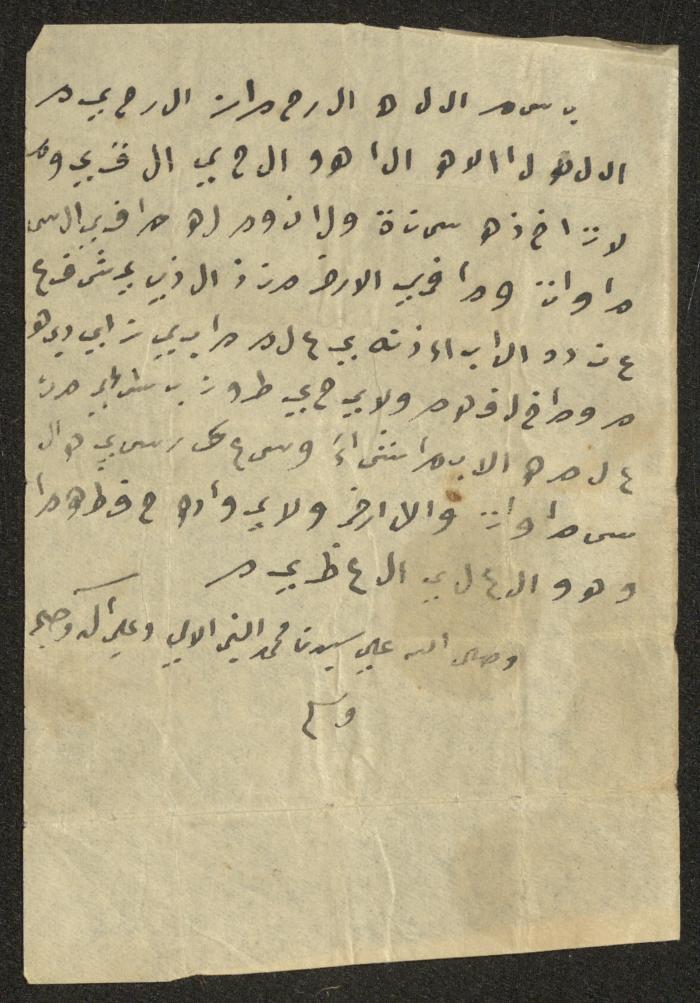 ب س م ا ل ل ه ا ل ر ح م ا ن ا ل ر ح ي م
ا ل ل ه ل ا ا ل ا ه ا ل ا ه و ا ل ح ي ا ل ق ي و م
ل ا ت ا خ ذ ه س ن ة و ل ا ن و م ل ه م ا ف ي ا ل س
م ا و ا ت و م ا ف ي ا ل ا ر ض م ن ذ ا ل ذ ي ي ش ف ع
ع ن د ه ا ل ا ب ا ذ ن ه ي ع ل م م ا ب ي ن ا ي د ي ه
م و م ا خ ل ف ه م و ل ا ي ح ي ط و ن ب ش ا ي م ن
ع ل م ه ا ل ا ب م ا ش ا ء و س ع ك ر س ي ه ا ل
س م ا و ا ت و ا ل ا ر ض و ل ا ي و أ د ه ح ف ظ ه م ا
و ه و ا ل ع ل ي ا ل ع ظ ي م
وصلى الله علي سيدنا محمد النبي الامي وعلي آله وصحبه
وسلم